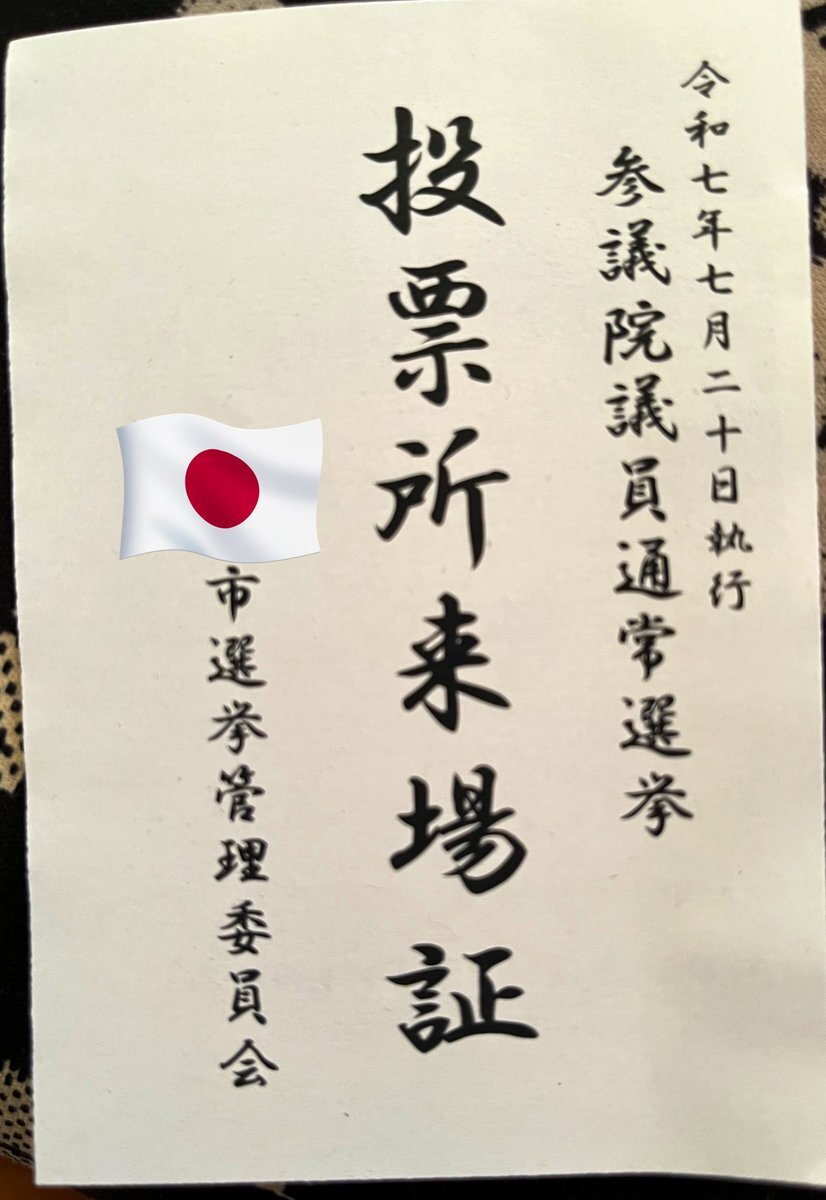 令和七年七月二十日執行
参議院議員通常選挙
投票所来場証
市選挙管理委員会